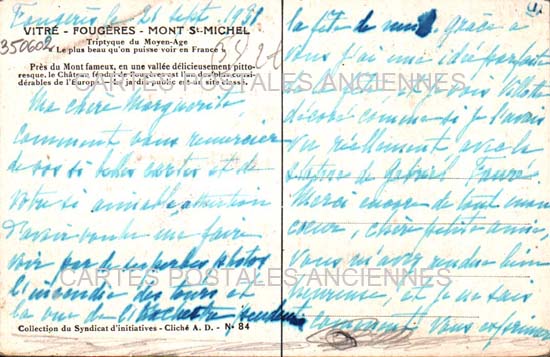 Fougères le 21 sept. 1931
VITRÉ - FOUGÈRES - MONT St-MICHEL
Triptyque du Moyen-Age
Le plus beau qu'on puisse voir en France
350602
Près du Mont fameux, en une vallée délicieusement pitto-
resque, le Château féodal de Fougères est l'un des plus consi-
dérables de l'Europe. Le jardin public est un site classé.
Ma chère Marguerite,
Comment vous remercier
de vos si belles cartes et de
votre si aimable attention
d'avoir voulu me faire
voir par de superbes photos
l'incendie des tours et
la vue de la Rochette
Collection du Syndicat d'initiatives - Cliché A. D. - N° 84
la fête de nuit. Grâce à
vous j'ai une idée parfaite
décoré comme si je l'avais
vu réellement avec la
statue de Gabriel
Merci encore de tout mon
cœur, chère petite amie,
vous m'avez rendue bien
heureuse, et je ne sais
comment vous exprimer
CARTES POSTALES ANCIENNES
CARTES POSTALES ANCIENNES